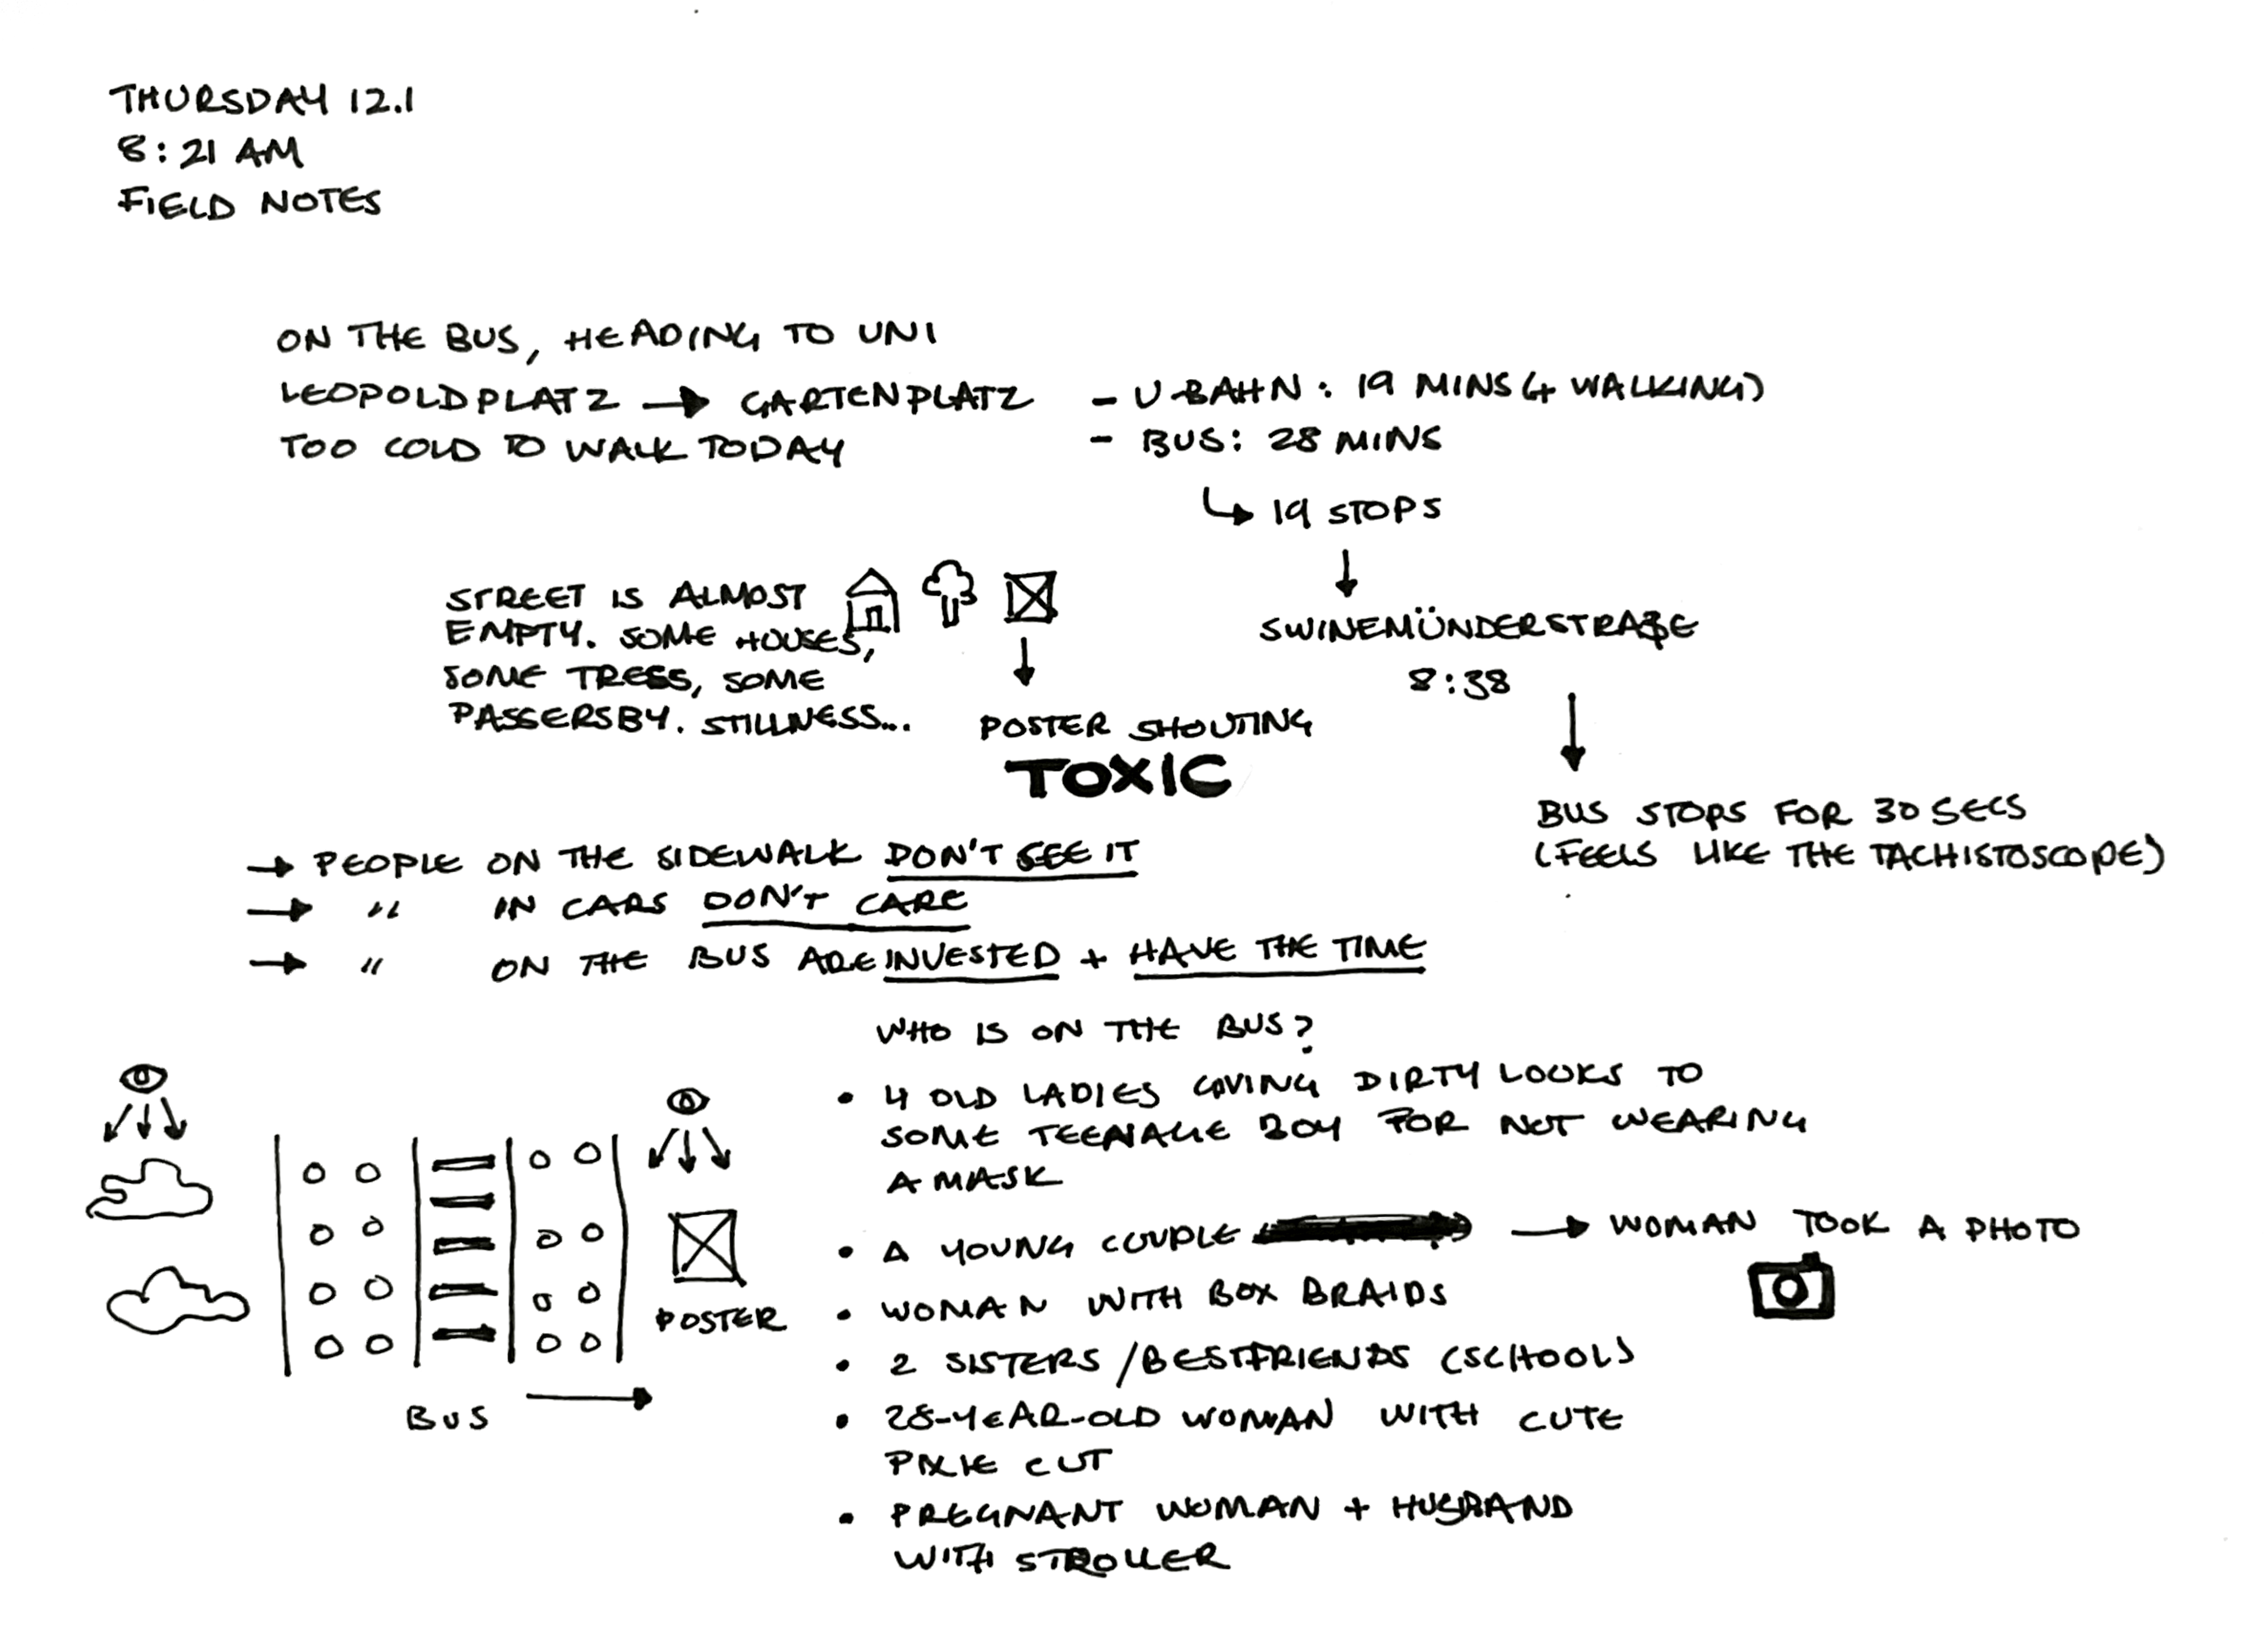 THURSDAY 12.1
8:21 AM
FIELD NOTES
ON THE BUS, HEADING TO UNI
LEOPOLDPLATZ → GARTENPLATZ
TOO COLD TO WALK TODAY
- U-BAHN: 19 MINS (+ WALKING)
- BUS: 28 MINS
↳ 19 STOPS
↓
SWINEMÜNDERSTRAßE
8:38
↓
BUS STOPS FOR 30 SECS
(FEELS LIKE THE TACHISTOSCOPE)
STREET IS ALMOST
EMPTY. SOME HOUSES,
SOME TREES, SOME
PASSERSBY. STILLNESS...
↓
POSTER SHOUTING
TOXIC
→ PEOPLE ON THE SIDEWALK DON'T SEE IT
→ " IN CARS DON'T CARE
→ " ON THE BUS ARE INVESTED + HAVE THE TIME
WHO IS ON THE BUS?
• 4 OLD LADIES GIVING DIRTY LOOKS TO
SOME TEENAGE BOY FOR NOT WEARING
A MASK
• A YOUNG COUPLE → WOMAN TOOK A PHOTO
• WOMAN WITH BOX BRAIDS
• 2 SISTERS/BESTFRIENDS (SCHOOL)
• 28-YEAR-OLD WOMAN WITH CUTE
PIXIE CUT
• PREGNANT WOMAN + HUSBAND
WITH STROLLER
POSTER
BUS →